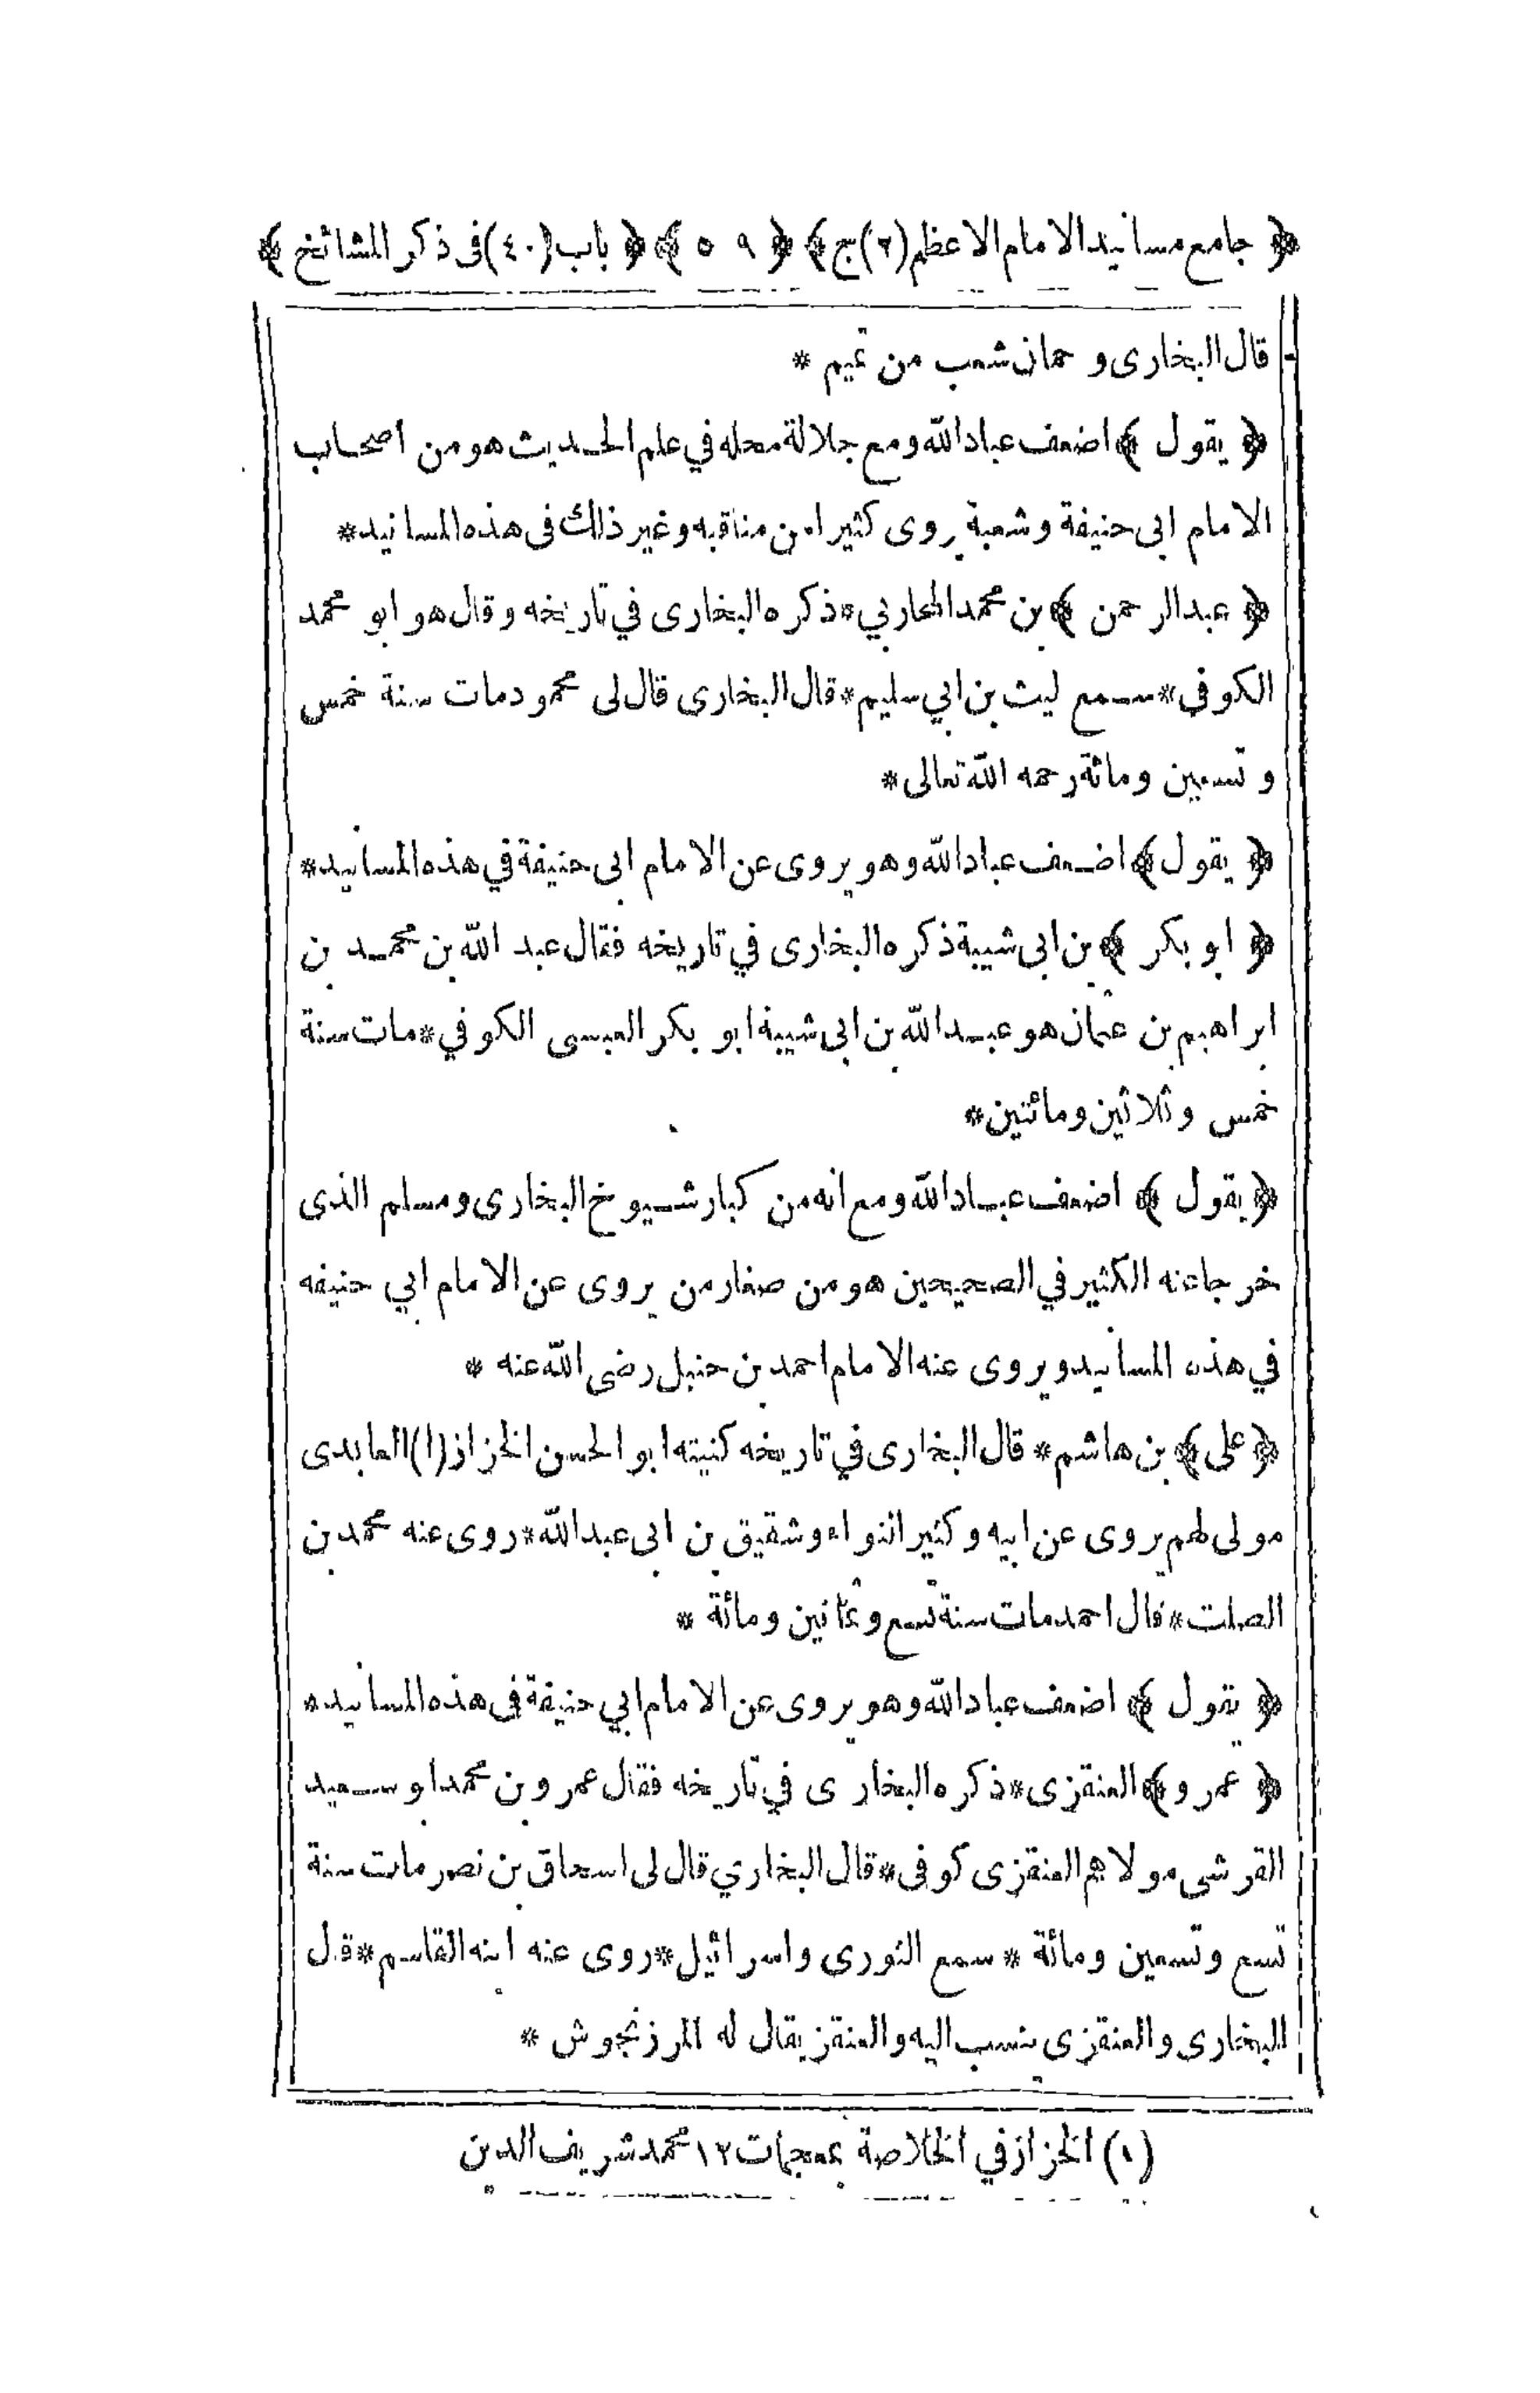 ﴿ جامع مسانيد الامام الاعظم (٢) ج ﴾ ﴿ ٥٠٩ ﴾ ﴿ باب (٤٠) فى ذكر المشائخ ﴾
قال البخارى و حمان شعب من تميم *
﴿ يقول ﴾ اضعف عباد الله ومع جلالة محله في علم الحديث هو من اصحاب
الامام ابى حنيفة وشعبة روى كثيرا من مناقبه وغير ذلك فى هذه المسانيد *
﴿ عبد الرحمن ﴾ بن محمد المحاربي * ذكره البخارى في تاريخه وقال هو ابو محمد
الكوفي * سمع ليث بن ابي سليم * قال البخارى قال لى محمود مات سنة خمس
و تسعين ومائة رحمه الله تعالى *
﴿ يقول ﴾ اضعف عباد الله وهو يروى عن الامام ابى حنيفة في هذه المسانيد *
﴿ ابو بكر ﴾ بن ابى شيبة ذكره البخارى في تاريخه فقال عبد الله بن محمد بن
ابراهيم بن عثمان هو عبد الله بن ابى شيبة ابو بكر العبسى الكوفي * مات سنة
خمس وثلاثين ومائتين *
﴿ يقول ﴾ اضعف عباد الله ومع انه من كبار شيوخ البخارى ومسلم الذى
خرجا عنه الكثير في الصحيحين هو من صغار من يروى عن الامام ابي حنيفه
في هذه المسانيد ويروى عنه الامام احمد بن حنبل رضى الله عنه *
﴿ على ﴾ بن هاشم * قال البخارى في تاريخه كنيته ابو الحسن الخزاز (١) العابدى
مولى لهم يروى عن ابيه وكثير النواء وشقيق بن ابى عبد الله * روى عنه محمد بن
الصلت * قال احمد مات سنة تسع وثمانين ومائة *
﴿ يقول ﴾ اضعف عباد الله وهو يروى عن الامام ابي حنيفة فى هذه المسانيد *
﴿ عمرو ﴾ العنقزى * ذكره البخارى في تاريخه فقال عمرو بن محمد ابو سعيد
القرشى مولاهم العنقزى كوفى * قال البخاري قال لى اسحاق بن نصر مات سنة
تسع وتسعين ومائة * سمع الثورى واسرائيل * روى عنه ابنه القاسم * قال
البخارى والعنقزى ينسب اليه والعنقز يقال له المرزنجوش *
(١) الخزاز في الخلاصة بمعجمات ١٢ محمد شريف الدين